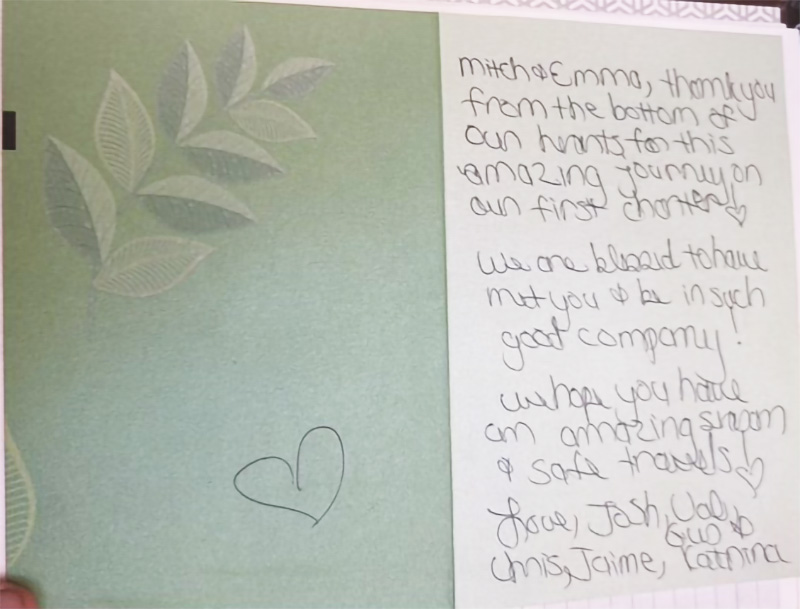 Mitch & Emma, thank you
from the bottom of
our hearts for this
amazing journey on
our first charter!
We are blessed to have
met you & be in such
good company!
We hope you have
an amazing season
& safe travels!
Love, Josh, Val,
Gus &
Chris, Jaime, Katrina